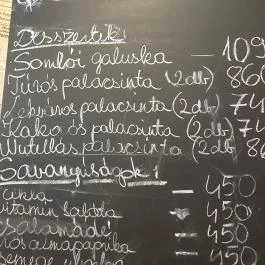 Desszertek:
Somlói galuska — 109
Túrós palacsinta (2db) 860
Lekváros palacsinta (2db) 74
Kakaós palacsinta (2db) 74
Nutellás palacsinta (2db) 86
Savanyúságok:
Cékla – 450
Vitamin saláta – 450
Csalamádé – 450
Kos almapaprika – 450
Csemege uborka 450